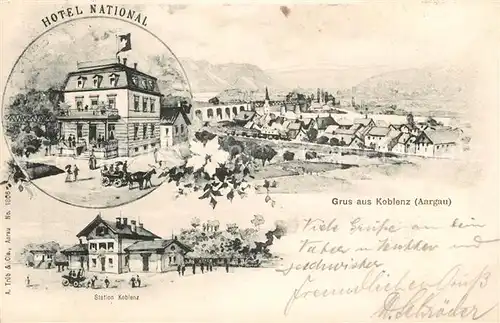 HOTEL NATIONAL
Grus aus Koblenz (Aargau)
Station Koblenz
A. Trüb & Cie., Aarau No.
Viele Grüße an dein
Vater u
Geschwister
freundlichen Gruß
Schröder